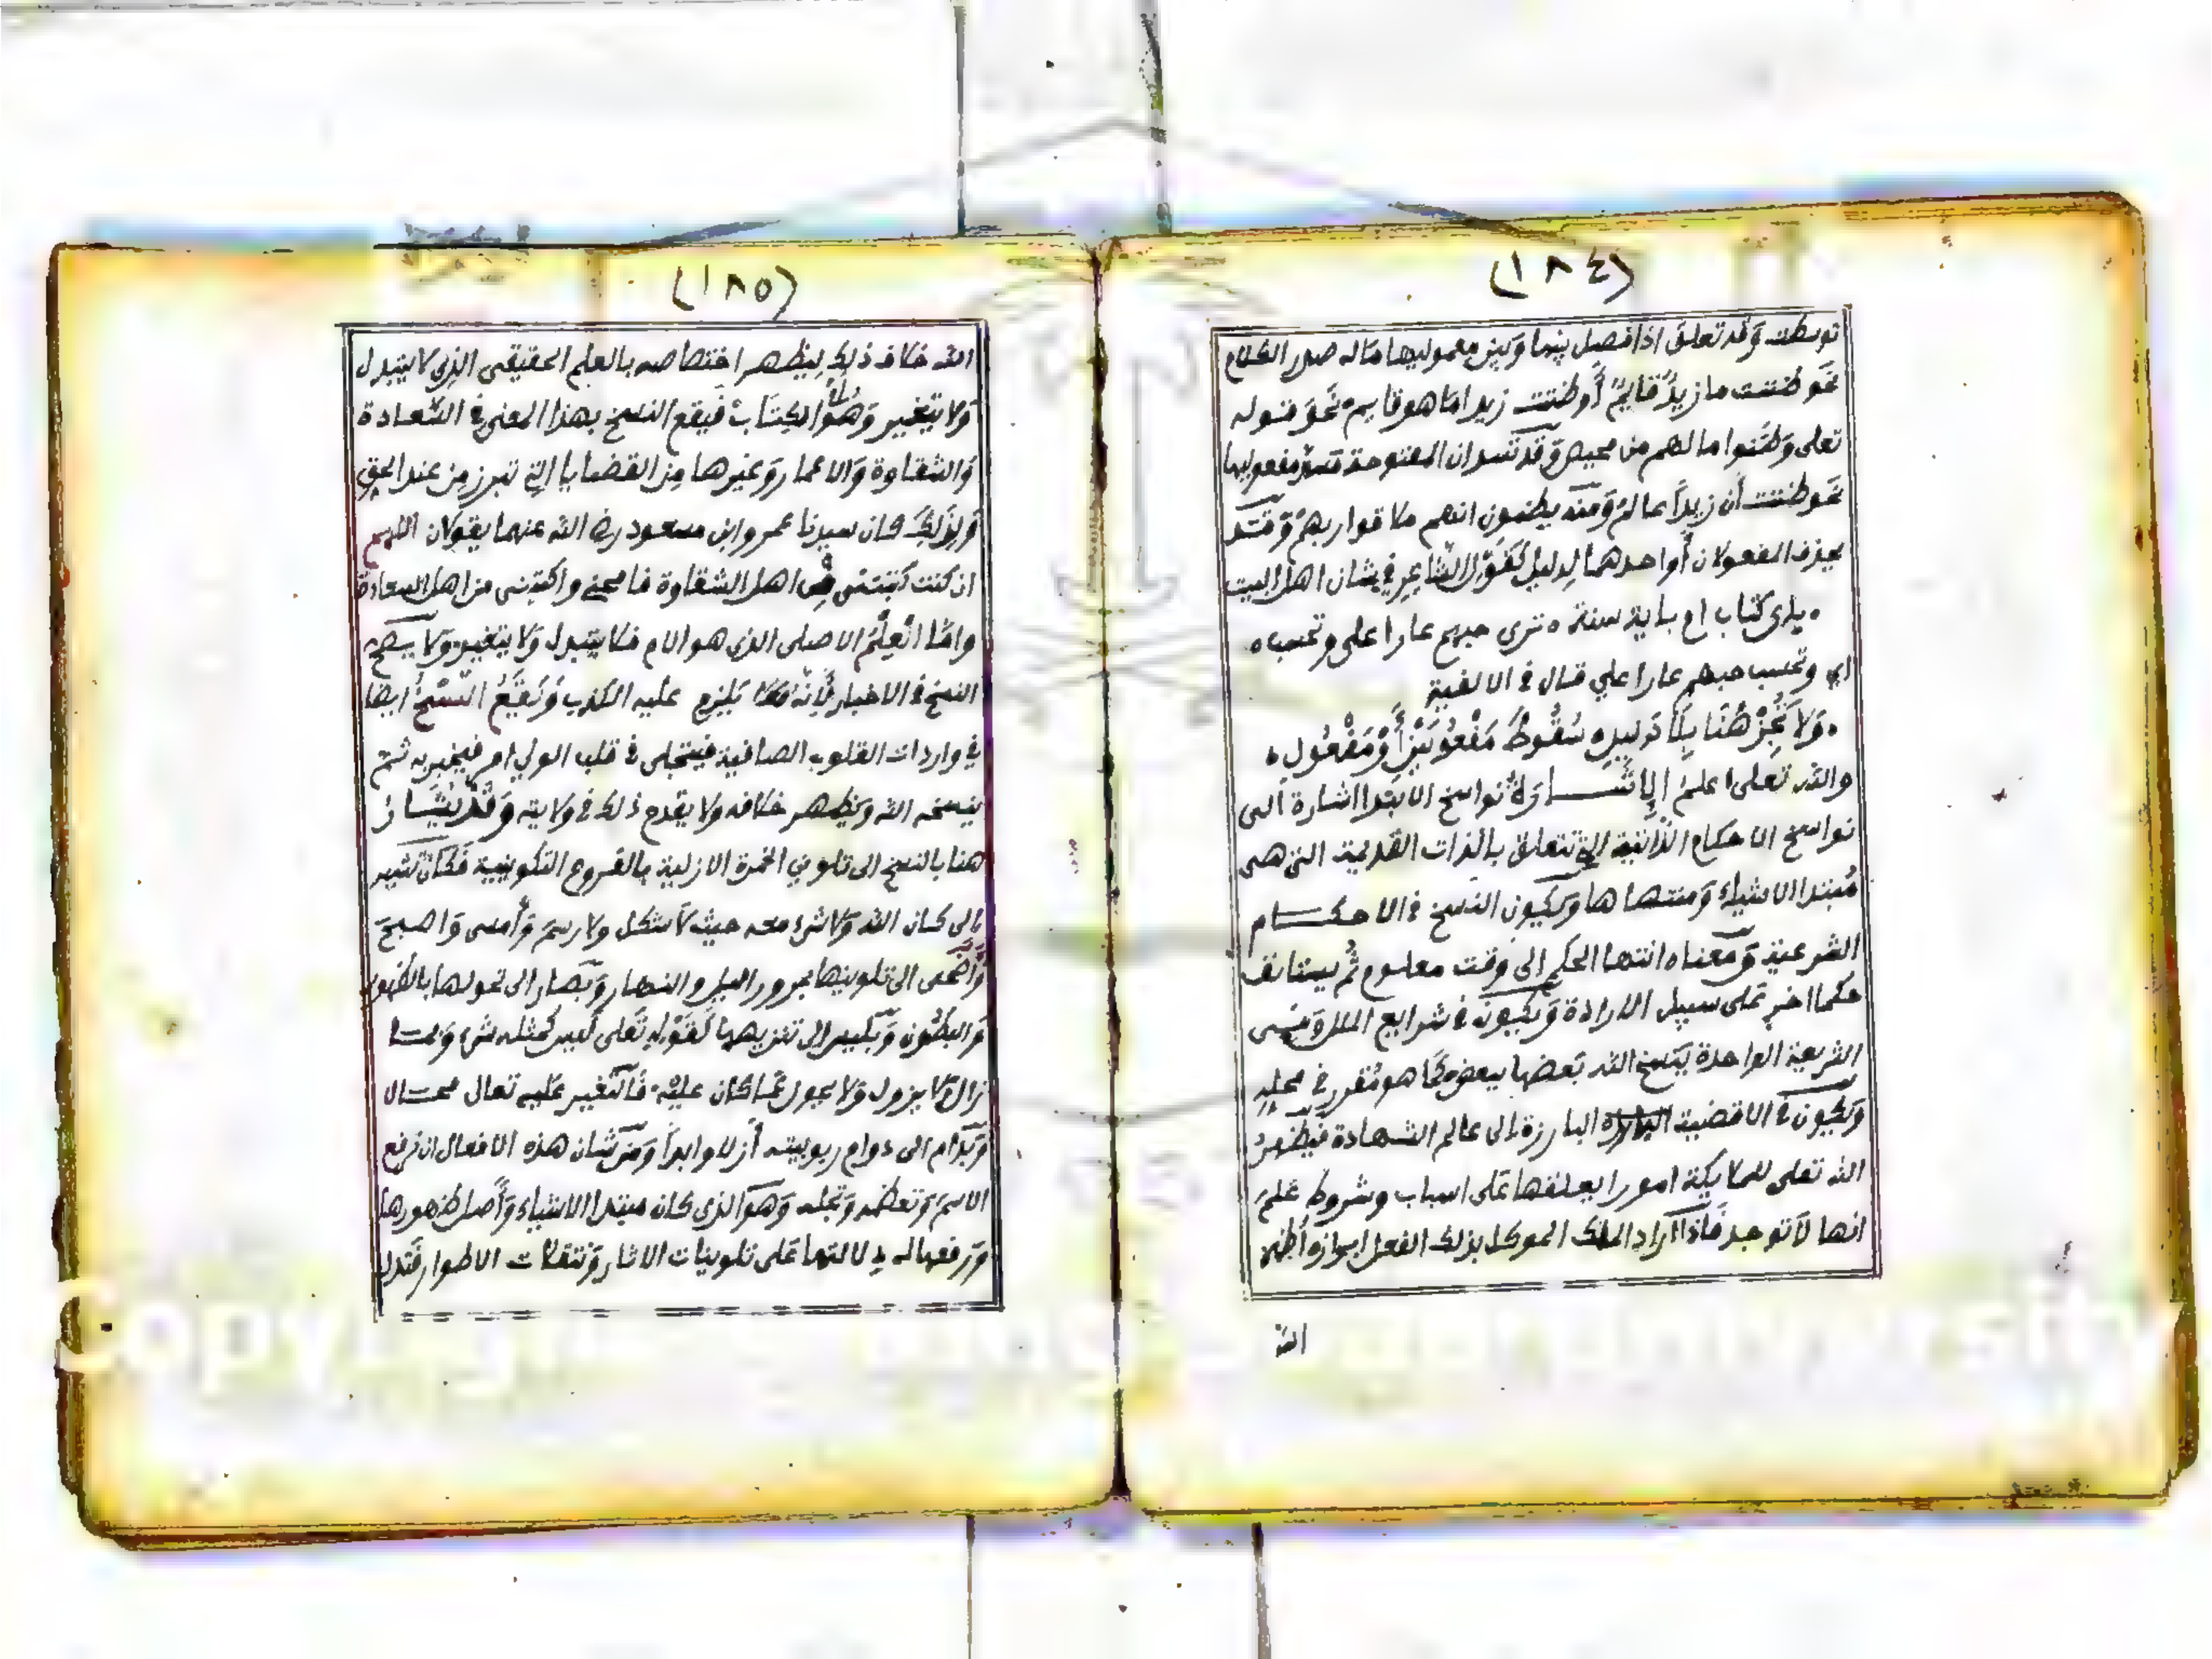 (١٨٤)
توسطت وَقد تعلق اذا فصل بينها وَبين معموليها ماله صدر الكلام
نحو ظننت ما زيدٌ قايمٌ أو ظننت زيدا ما هو قايم نحوَ قوله
تعلى وَظنوا ما لهم من محيص وَقد تسد ان المفتوحة مسد مفعوليها
نحو ظننت أن زيداً عالمٌ وَمنه يظنون انهم ملاقوا ربهمْ وَقد
يحذف المفعولان أو احدهما لِدليل كقوْل الشاعِر في شان اهل البيت
ه باي كتاب ام باية سنة ه ترى حبهم عارا على وتحسب ه
اي وتحسب حبهم عارا علي قال في الالفية
ه وَلا تُجِزْ هُنَا بِلَا دَلِيلِ سُقُوطَ مَفْعُولَيْنِ أَوْ مَفْعُولِ ه
والله تعلى اعلمُ الإشَارَةُ نواسخ الابتدا اشارة الى
نواسخ الاحكام الذاتية التي تتعلق بالذات القديمة التي هى
مُبتدا الاشياء وَمنتهاها وَيكون النسخ في الاحكام
الشرعية وَمعناه انتها الحكم الى وَقت معلوم ثُم يستانف
حكما اخر عَلى سبيل الارادة وَيكون في شرايع الملل وَفى
الشريعة الواحدة ينسخ الله بَعضها ببعض كمَا هو مُقرر في محلِه
وَيكون في الاقضية البارزة الى عالم الشهادة فيظهرُ
الله تعلى للملايكة امورا يعلقها عَلى اسباب وشروط عَلمَ
انها لا توجد فَاذا اَراد الملك الموكل بذلك الفعل ابرازه أظهر
الله
(١٨٥)
الله خلاف ذلِك ليظهر اختصاصه بالعلم الحقيقى الذِي لا يتبدل
وَلا يتغير وَهُوَ أم الكِتَابْ فيقع النسخ بهذا المعنى في السَّعادة
وَالشقاوة وَالاعمار وَغيرها مِن القضايا التِي تبرز مِن عند الحقِ
وَلِذَلِكَ كان سيدنا عمر وابن مسعود رضي الله عنهما يقولان اللهم
ان كنت كتبتنى في اهل الشقاوة فامحنى واكتبنى من اهل السعادة
وامَّا الْعِلْمُ الاصلى الذي هو الام فلا يتبدل وَلا يتغير وَلا يصح
النسخ في الاخبار لأِنهُ يَلزم عليه الكذب وَيَقَعُ النَّسْخُ ايضا
في واردات القلوب الصافية فيتجلى في قلب الولي امر فيخبر به ثم
ينسخه الله وَيظهر خلافه ولا يقدح ذلك في ولايته وَقدْ يُشَارُ
هنا بالنسخ الى تلوين الخمرة الازلية بالفروع التكوينية فَكَان تشير
الى كان الله وَلا شىء معه حيث لا شكل ولا رسم وَأمسى وَاصبحَ
وَأضْحَى الى تلوينها بمرور اليل والنهار وَبصار الى تحولها بالظهور
وَالبطون وَبليس الى تنزيهها كقَوْلهِ تَعلى لَيس كمثله شىء وَبما
زال وَلا يزول وَلا يحول عَما كان عليْه فَالتغير عَليه تعالى محال
وَبدَام الى دوام ربوبيته أزلا وابداً وَمن شان هذه الافعال ان ترفع
الاسم وَتعظمه وَتجله وَهوَ الذي كان مبتدا الاشياء وَأصل ظهورها
وَرفعها له دلالتها عَلى تلوينات الاثار وَتنقلات الاطوار فَتدل